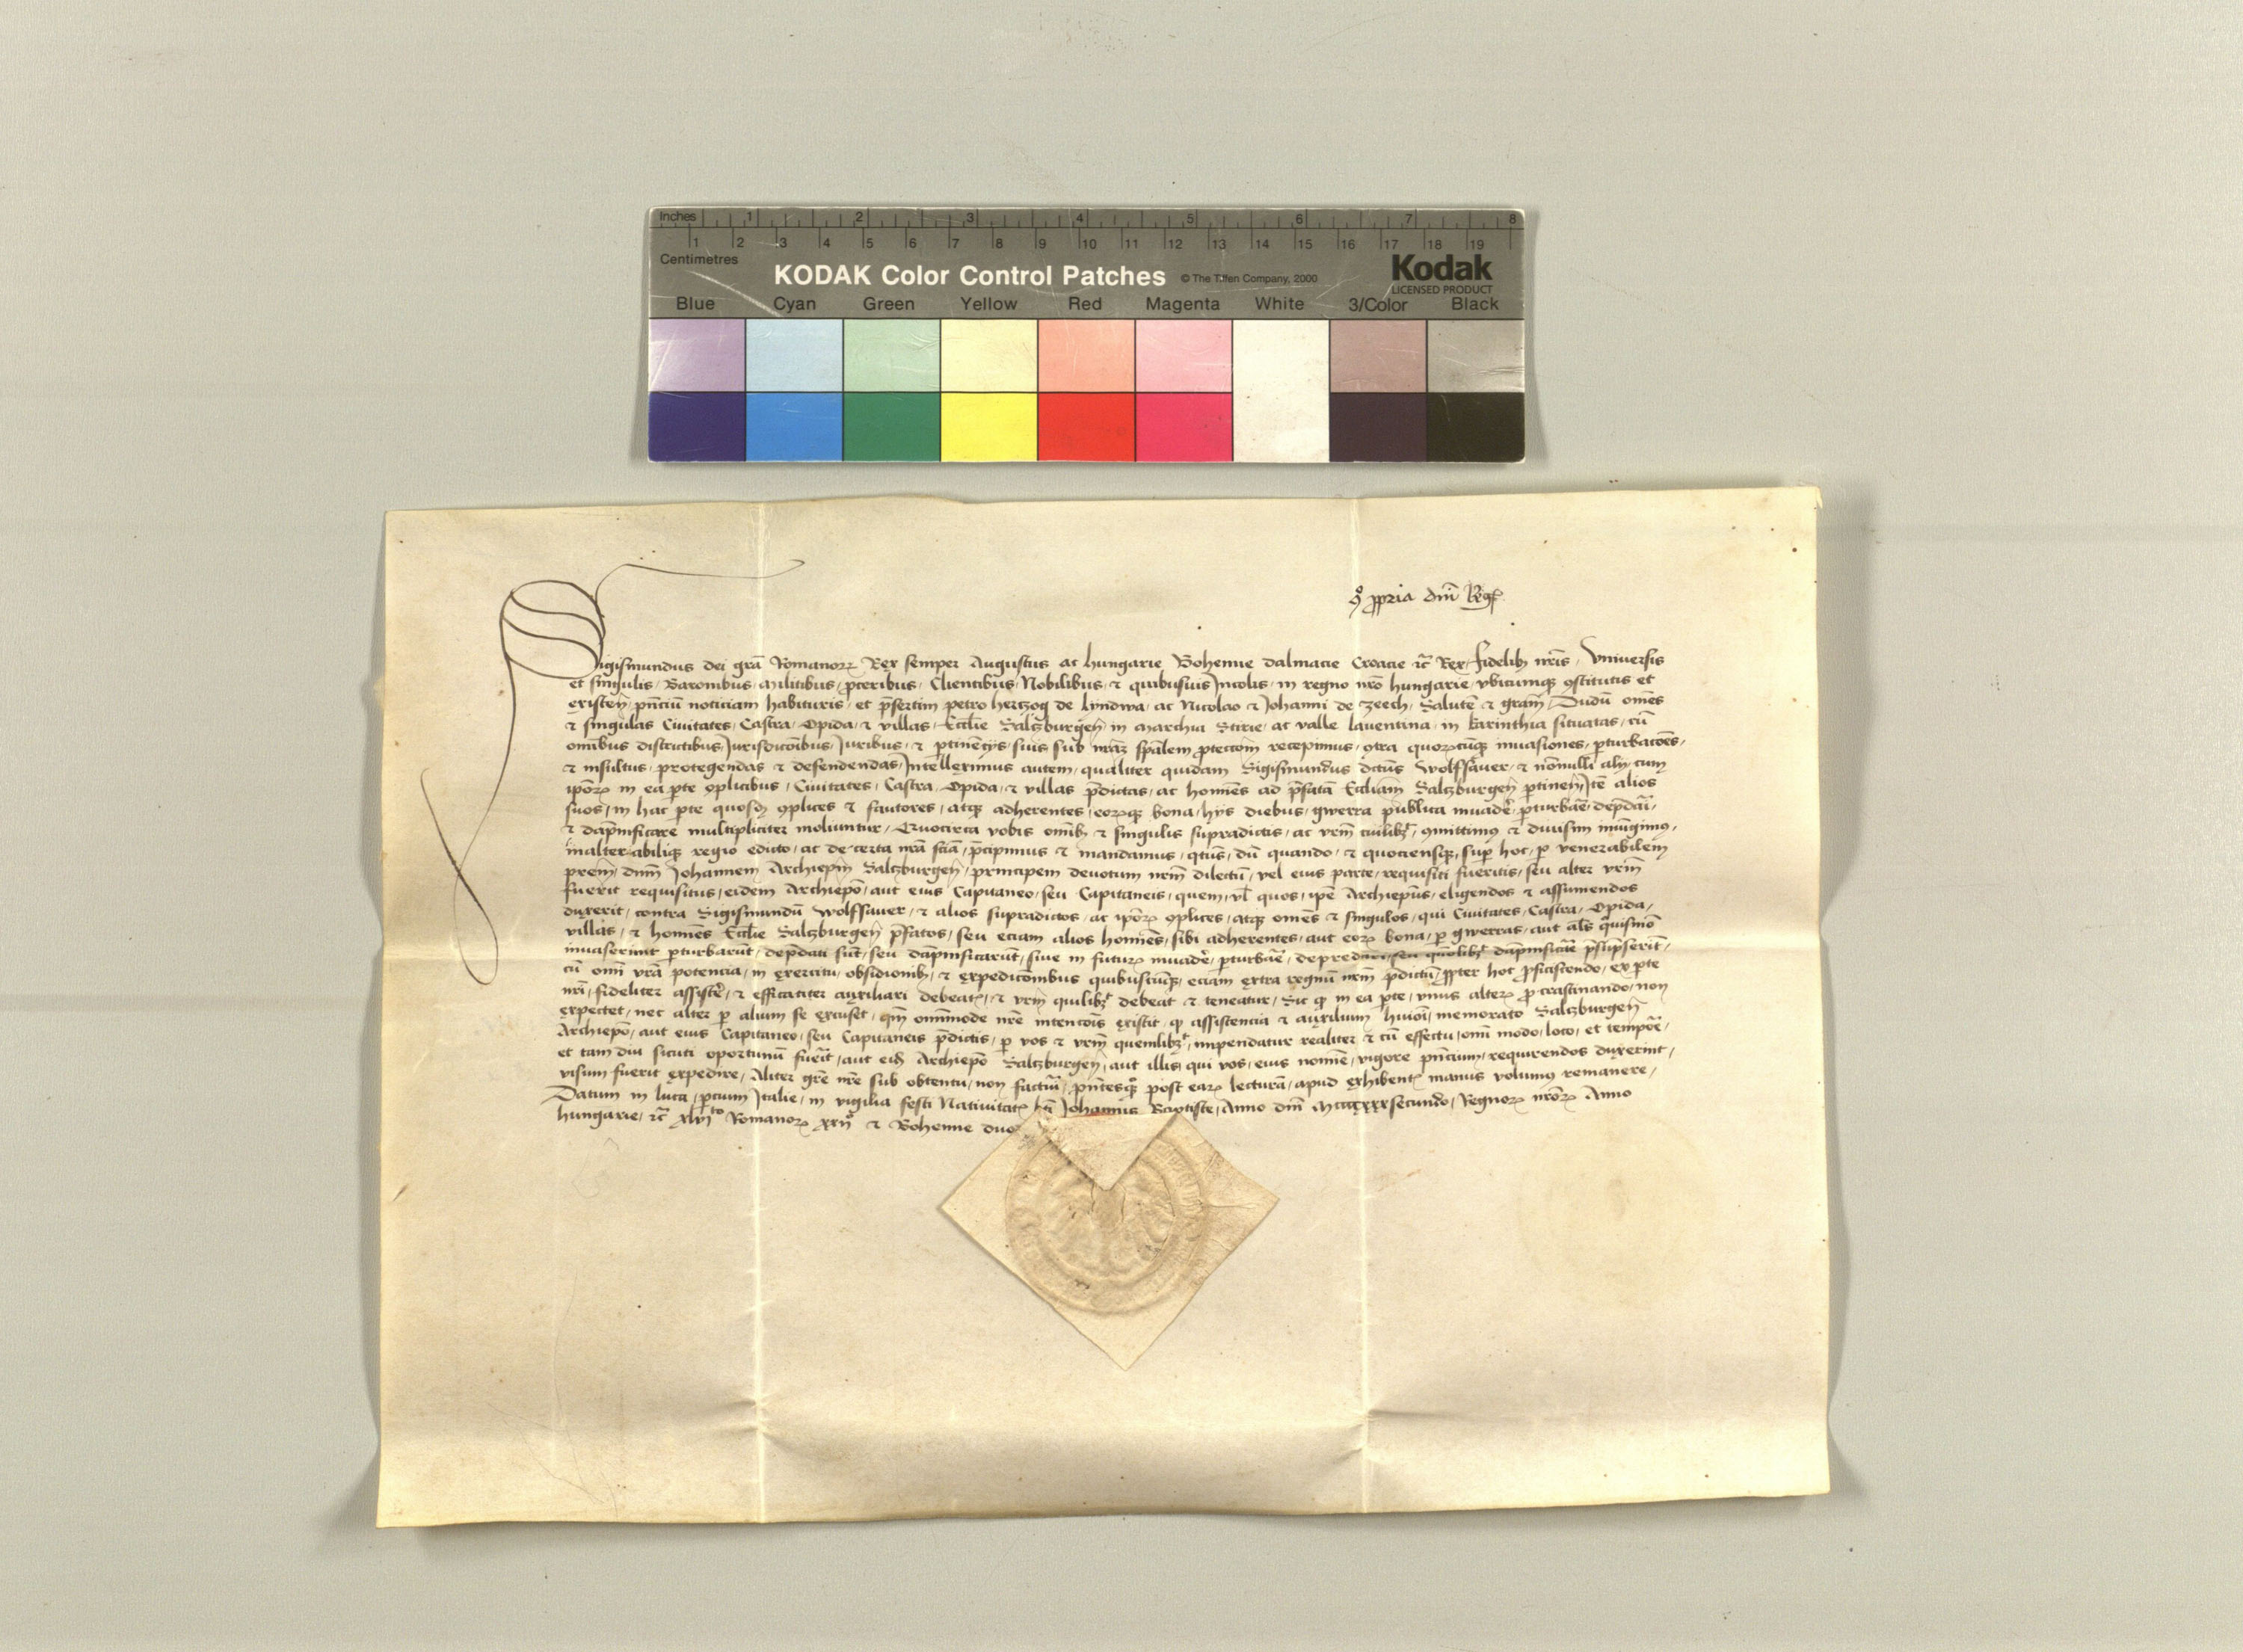 Inches 1 2 3 4 5 6 7 8
1 2 3 4 5 6 7 8 9 10 11 12 13 14 15 16 17 18 19
Centimetres
KODAK Color Control Patches © The Tiffen Company, 2000 Kodak
LICENSED PRODUCT
Blue Cyan Green Yellow Red Magenta White 3/Color Black
ꝯͦ ꝓpria dm̄ Reg
Sigismundus dei grā Romanoꝝ Rex semper Augustus ac hungarie Bohemie dalmacie Croacie ꝛc̄ Rex fidelibꝫ nr̄is / Vniuersis
et singulis / Baronibus / Militibus / ꝓceribus / Clientibus / Nobilibus / ⁊ quibusuis Incolis / in regno nr̄o hungarie / vbicumqꝫ ꝯstitutis et
existen̄ / pn̄ciū noticiam habituris / et p̄sertim petro hertzog de lyndwa / ac Nicolao ⁊ Johanni de Zeech / Salutē ⁊ grām / Dudū om̄es
⁊ singulas Ciuitates / Castra / Opida / ⁊ villas / Eccl̄ie Salczburgen̄ / in Marchia Stirie / ac valle lauentina / in karinthia situatas / cū
om̄ibus districtibus / Jurisdicōibus / Juribus / ⁊ ꝑtinēcijs / suis sub nrāꝫ spālem ꝓteccōm recepimus / ꝯtra quoꝝcūqꝫ inuasiones / ꝑturbacōes /
⁊ insultus / protegendas ⁊ defendendas / Intelleximus autem / qualiter quidam Sigismundus dictus Wolffsauer / ⁊ nōnulli alij cum
ip̄oꝝ in ea ꝑte ꝯplicibus / Ciuitates / Castra / Opida / ⁊ villas p̄dictas / ac homīes ad p̄fatā Eccliam Salczburgen̄ ꝑtinen̄ / Itē alios
suos / in hac ꝑte quosqꝫ ꝯplices ⁊ fautores / atqꝫ adherentes / eoꝝqꝫ bona / hijs diebus / gwerra publica inuadē / ꝑturbāe / dep̄dāi /
⁊ dāpnificare multipliciter moliuntur / Quocirca vobis om̄ibꝫ ⁊ singulis supradictis / ac vrm̄ cuilibꝫ / ꝯmittimꝰ ⁊ diuisim iniūgimꝰ /
inalterabiliqꝫ regio edicto / ac de certa nrā sciā / p̄cipimus ⁊ mandamus / qtūs / dū quando / ⁊ quociensqꝫ / sup hoc / ꝑ venerabilem
prem̄ / dnm̄ Johannem Archiepm̄ Salczburgen̄ / principem deuotum nrm̄ dilectū / vel eius parte / requisiti fueritis / seu alter vrm̄
fuerit requisitus / eidem Archiepō / aut eius Capitaneo / seu Capitaneis / quem / vl̄ quos / ip̄e Archiepūs / eligendos ⁊ assumendos
duxerit / contra Sigismundū Wolffsauer / ⁊ alios supradictos / ac ip̄oꝝ ꝯplices / atqꝫ om̄es ⁊ singulos / qui Ciuitates / Castra / Opida /
villas / ⁊ homīes Eccl̄ie Salczburgen̄ p̄fatos / seu eciam alios homīes / sibi adherentes / aut eoꝝ bona / ꝑ gwerras / aut als̄ quismō
inuaserint ꝑturbarūt / dep̄dati sūt / seu dāpnificarūt / siue in futuꝝ inuadē / ꝑturbāe / depredari / seu quolibꝫ dāpnificāe p̄sūpserīt /
cū om̄i vrā potencia / in exercitu / obsidionibꝫ / ⁊ expedicōibus quibuscūqꝫ / eciam extra regnū nrm̄ p̄dictū / ꝓpter hoc ꝓficiscendo / ex ꝑte
nrī / fideliter assistē / ⁊ efficaciter auxiliari debeatꝭ / ⁊ vrm̄ quilibꝫ debeat ⁊ teneatur / Sic qꝫ in ea ꝑte / vnus alteꝝ ꝓcrastinando / non
expectet / nec alter ꝑ alium se excuset / qm̄ om̄imode nrē intencōis existit / qꝫ assistencia ⁊ auxilium huiōi / memorato Salczburgen̄
Archiepō / aut eius Capitaneo / seu Capitaneis p̄dictis / ꝑ vos ⁊ vrm̄ quemlibꝫ / impendatur realiter ⁊ cū effectu / om̄i modo / loco / et tempōe /
et tam diu sicuti oportunū fueīt / aut eid̄ Archiepō Salczburgen̄ / aut illis / qui vos / eius nomīe / vigore pn̄cium / requirendos duxerint /
visum fuerit expedire / Aliter grē nrē sub obtentu / non facturi / pn̄tesqꝫ post eaꝝ lecturā / apud exhibentꝭ manus volumꝰ remanere /
Datum in luca / ꝑcium Italie / in vigilia festi Natiuitatꝭ sc̄i Johannis Baptiste / Anno dm̄ Mccccxxxsecundo / Regnoꝝ nr̄oꝝ Anno
hungarie / ꝛc̄ xlvjto Romanoꝝ xxijo ⁊ Bohemie duo